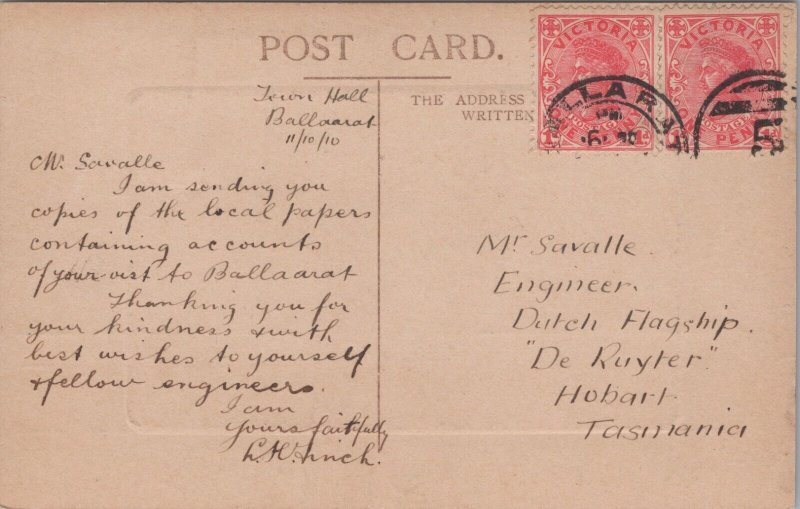 POST CARD.
THE ADDRESS
WRITTEN
VICTORIA
VICTORIA
Town Hall
Ballaarat
11/10/10
Mr. Savalle
I am sending you
copies of the local papers
containing accounts
of your visit to Ballaarat
Thanking you for
your kindness & with
best wishes to yourself
& fellow engineers.
I am
yours faithfully
Mr Savalle.
Engineer.
Dutch Flagship.
"De Ruyter"
Hobart
Tasmania